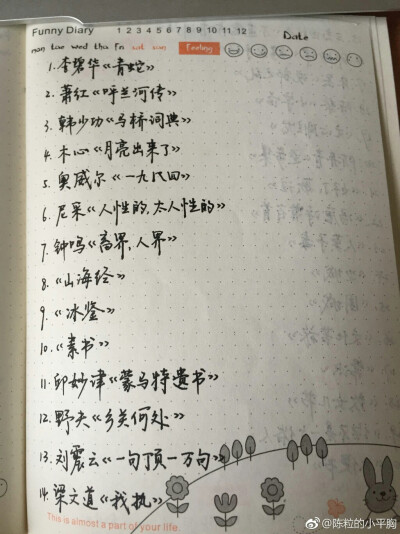 Funny Diary
1 2 3 4 5 6 7 8 9 10 11 12
Date
mon tue wed thu fri sat sun Feeling
1. 李碧华《青蛇》
2. 萧红《呼兰河传》
3. 韩少功《马桥词典》
4. 木心《月亮出来了》
5. 奥威尔《一九八四》
6. 尼采《人性的,太人性的》
7. 钟鸣《畜界,人界》
8. 《山海经》
9. 《冰鉴》
10. 《素书》
11. 邱妙津《蒙马特遗书》
12. 野夫《乡关何处》
13. 刘震云《一句顶一万句》
14. 梁文道《我执》
This is almost a part of your life.
@陈粒的小平胸